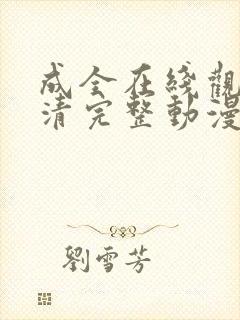 成全在綫觀
清完整動漫
劉雪芳